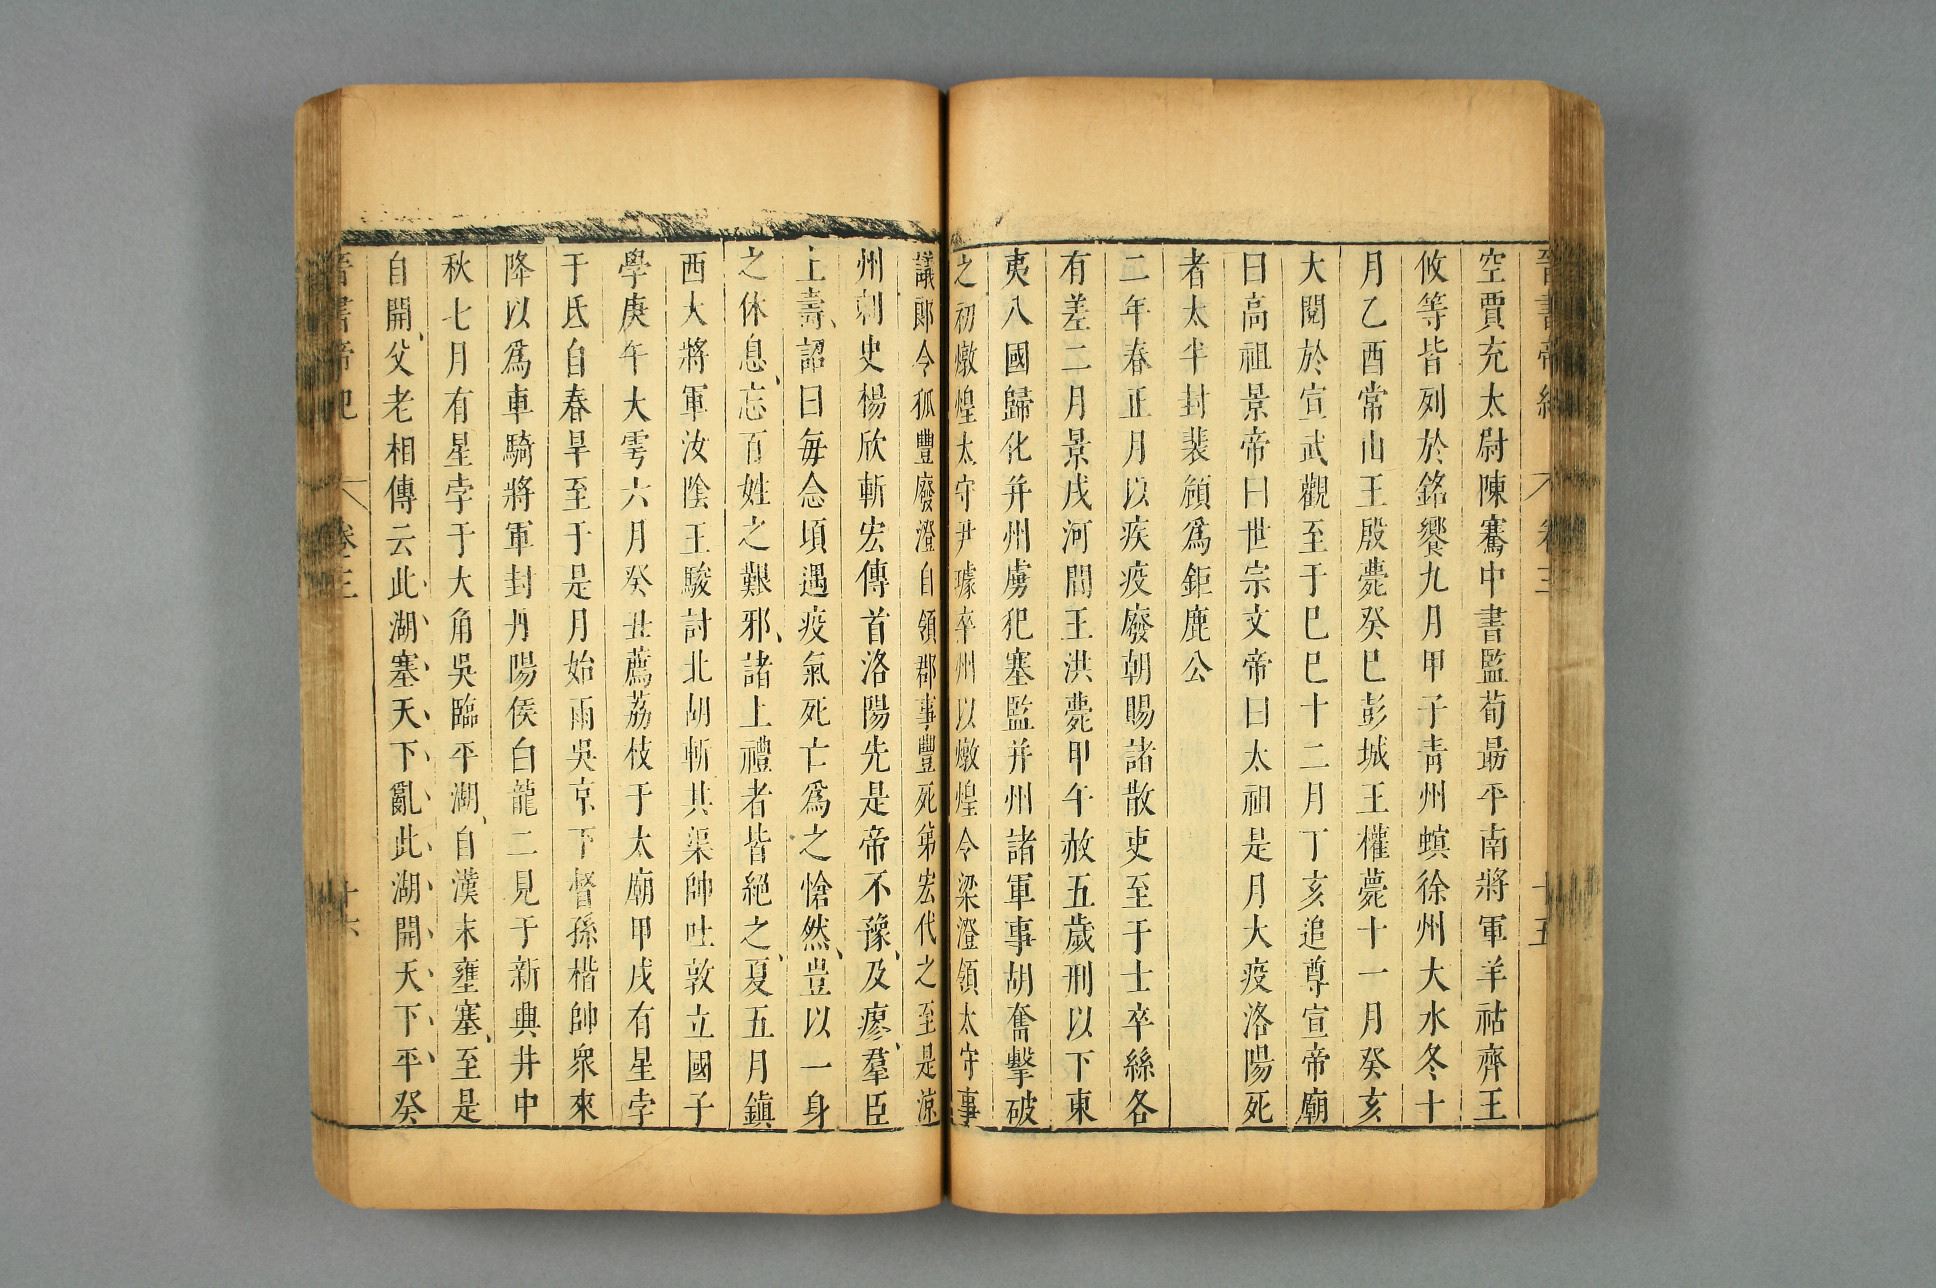 晉書帝紀 卷三 十五
空賈充太尉陳騫中書監荀勗平南將軍羊祜齊王
攸等皆列於銘饗九月甲子青州螟徐州大水冬十
月乙酉常山王殷薨癸巳彭城王權薨十一月癸亥
大閱於宣武觀至于巳巳十二月丁亥追尊宣帝廟
曰高祖景帝曰世宗文帝曰太祖是月大疫洛陽死
者太半封裴頠爲鉅鹿公
二年春正月以疾疫廢朝賜諸散吏至于士卒絲各
有差二月景戌河間王洪薨甲午赦五歲刑以下東
夷八國歸化并州虜犯塞監并州諸軍事胡奮擊破
之初燉煌太守尹璩卒州以燉煌令梁澄領太守事
議郎令狐豐廢澄自領郡事豐死弟宏代之至是涼
州刺史楊欣斬宏傳首洛陽先是帝不豫及瘳羣臣
上壽詔曰每念頃遇疫氣死亡爲之愴然豈以一身
之休息忘百姓之艱邪諸上禮者皆絕之夏五月鎮
西大將軍汝陰王駿討北胡斬其渠帥吐敦立國子
學庚午大雩六月癸丑薦荔枝于太廟甲戌有星孛
于氐自春旱至于是月始雨吳京下督孫楷帥衆來
降以爲車騎將軍封丹陽侯白龍二見于新興井中
秋七月有星孛于大角吳臨平湖自漢末壅塞至是
自開父老相傳云此湖塞天下亂此湖開天下平癸
晉書帝紀 卷三 十六